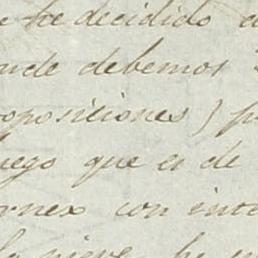 e he decidido a
nde debemos
oposiciones) p
uego que es de
ornex con inte